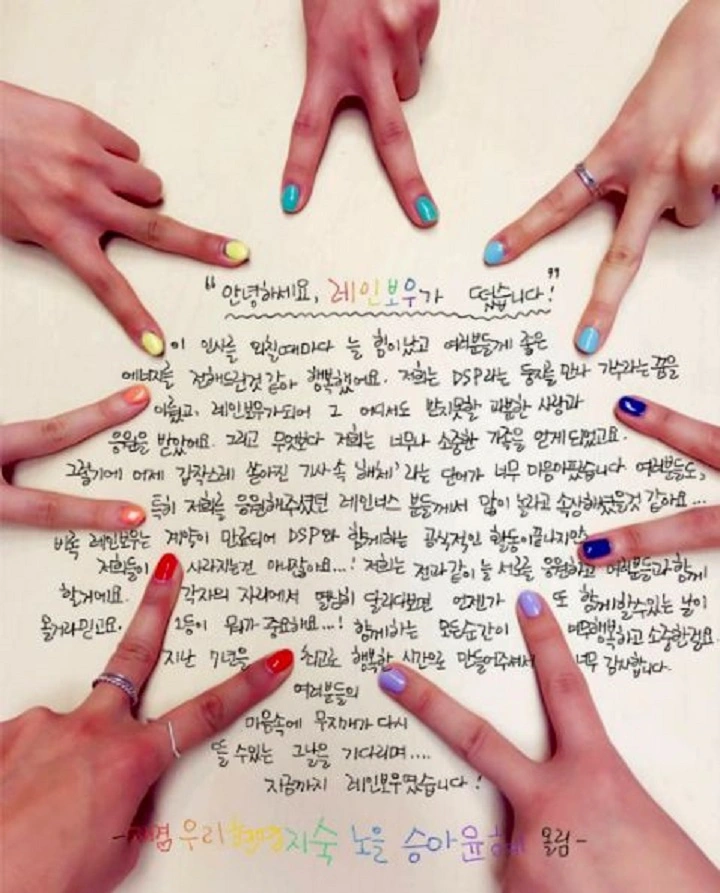 "안녕하세요, 레인보우가 떴습니다!"
이 인사를 외칠때마다 늘 힘이났고 여러분들께 좋은
에너지를 전해드린것 같아 행복했어요. 저희는 DSP라는 둥지를 만나 가수라는 꿈을
이뤘고, 레인보우가되어 그 어디서도 받지못할 과분한 사랑과
응원을 받았어요. 그리고 무엇보다 저희는 너무나 소중한 가족을 얻게되었고요.
그렇기에 어제 갑작스레 쏟아진 기사 속 '해체' 라는 단어가 너무 마음아팠습니다 여러분들도,
특히 저희를 응원해주셨던 레인너스 분들께서 많이 놀라고 속상해하셨을것 같아요...
비록 레인보우는 계약이 만료되어 DSP와 함께하는 공식적인 활동이끝나지만
저희들이 사라지는건 아니잖아요...! 저희는 전과같이 늘 서로를 응원하고 여러분들과 함께
할거에요. 각자의 자리에서 열심히 달리다보면 언젠가 또 함께할수있는 날이
올거라믿고요. 1등이 뭐가 중요해요...! 함께하는 모든순간이 너무행복하고 소중한걸요.
지난 7년을 최고로 행복한 시간으로 만들어주셔서 너무 감사합니다.
여러분들의
마음속에 무지개가 다시
뜰 수있는 그날을 기다리며....
지금까지 레인보우였습니다!
-재경 우리 현영 지숙 노을 승아 윤혜 올림-